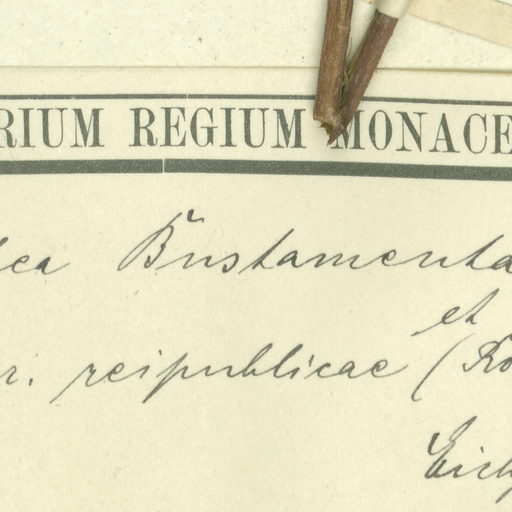 RIUM REGIUM MONACE
ea Bustamenta
et
r. reipublicae (Ro
Eich